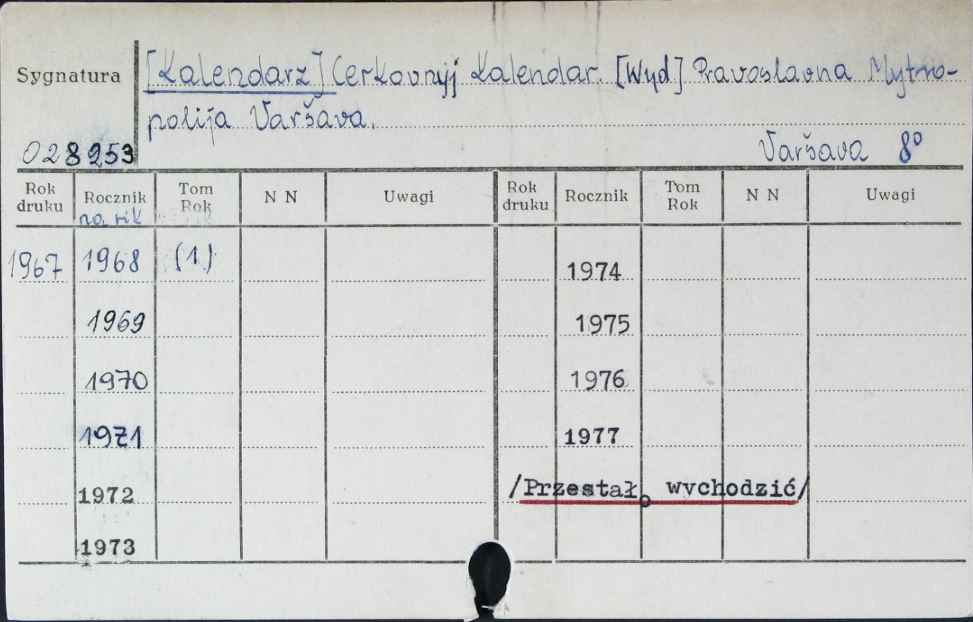 Sygnatura
[Kalendarz] Cerkovnyj Kalendar. [Wyd] Pravoslavna Mytro-
polija Varšava.
028253
Varšava 8°
Rok druku Rocznik Tom Rok N N Uwagi Rok druku Rocznik Tom Rok N N Uwagi
na rik
1967 1968 (1.) 1974
1969 1975
1970 1976
1971 1977
1972 /Przestał wychodzić/
1973